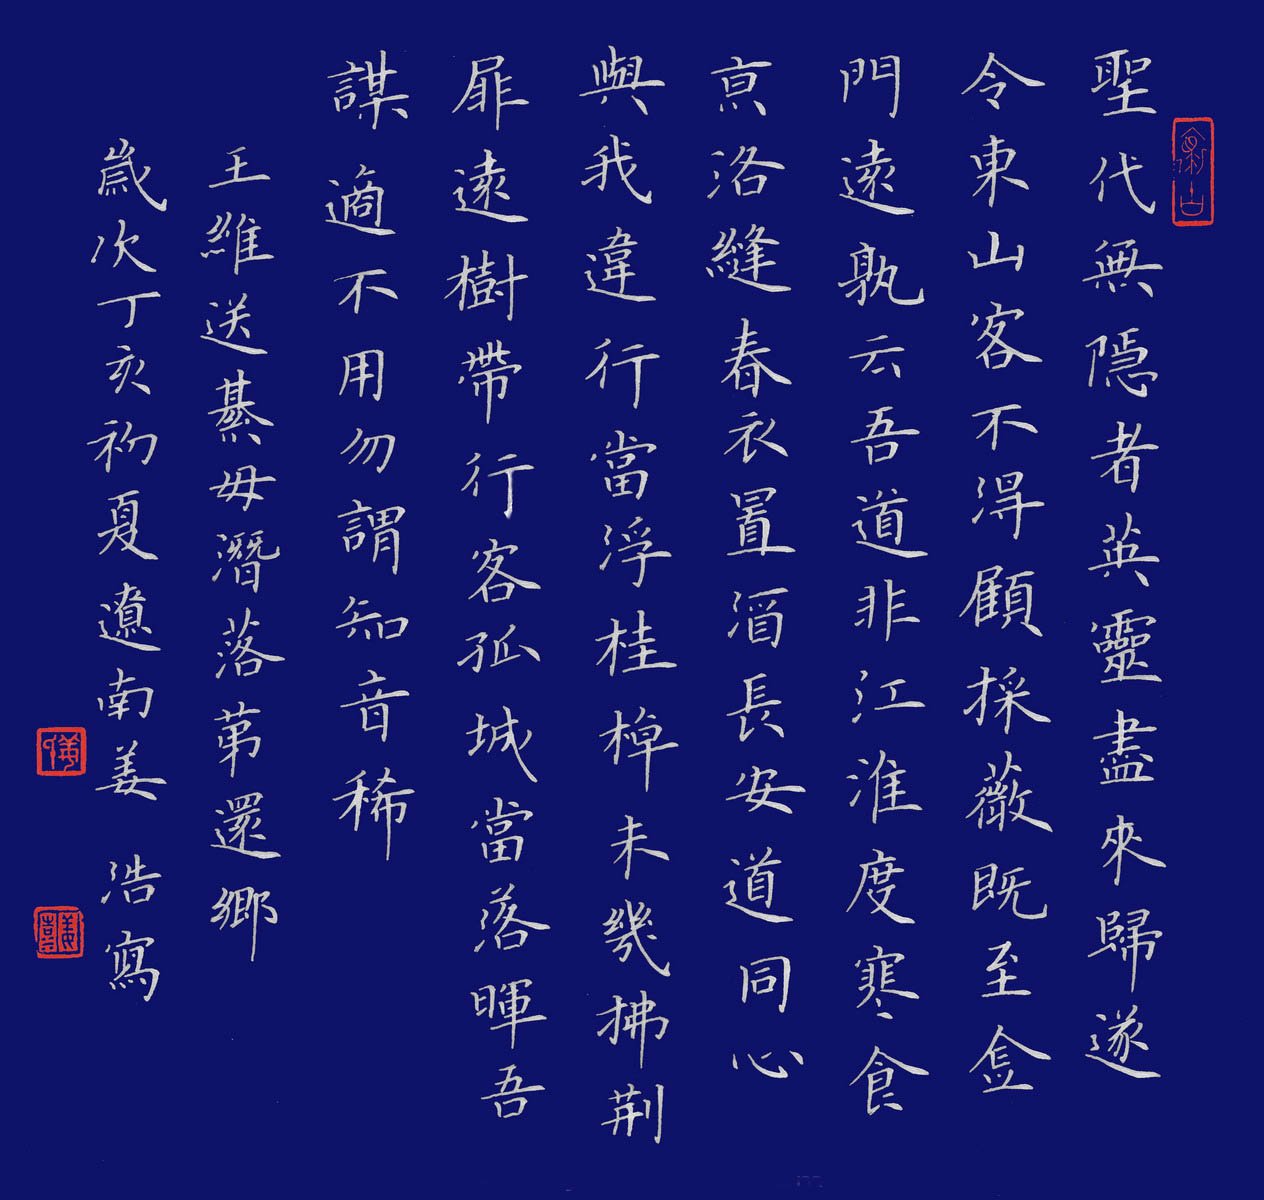 聖代無隱者英靈盡來歸遂
令東山客不得顧採薇既至金
門遠孰云吾道非江淮度寒食
亰洛縫春衣置酒長安道同心
與我違行當浮桂棹未幾拂荆
扉遠樹帶行客孤城當落暉吾
謀適不用勿謂知音稀
王維送綦毋潛落第還鄉
歲次丁亥初夏遼南姜 浩寫